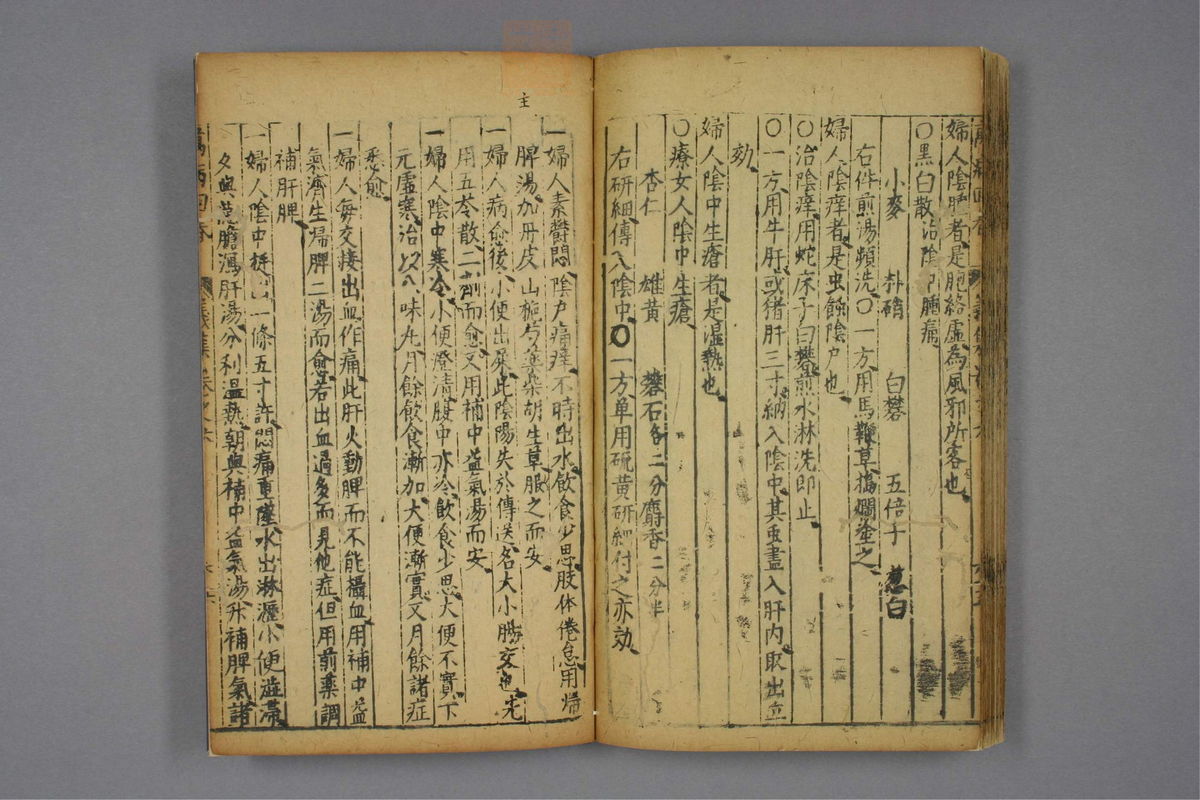 婦人陰腫者是胞絡虛為風邪所客也
○黑白散治陰腫痛
小麥 朴硝 白礬 五倍子 葱白
右件煎湯頻洗○一方用馬鞭草搗爛塗之
婦人陰痒者是虫蝕陰戶也
○治陰痒用蛇床子白礬煎水淋洗即止
○一方用牛肝或猪肝三寸納入陰中其虫盡入肝內取出立
効
婦人陰中生瘡者是溫熱也
○療女人陰中生瘡
杏仁 雄黃 礬石各二分麝香二分半
右研細傳入陰中○一方单用硫黄研細付之亦効
主
一婦人素欝悶陰户痛痒不時出水飲食少思肢体倦怠用歸
脾湯加丹皮山梔芍藥柴胡生草服之而安
一婦人病愈後小便出屎此陰陽失於傳送名大小腸交也先
用五苓散二劑而愈又用補中益氣湯而安
一婦人陰中寒冷小便澄清腹中亦冷飲食少思大便不實下
元虛寒治以八味丸月餘飲食漸加大便漸實又月餘諸症
悉愈
一婦人每交接出血作痛此肝火動脾而不能攝血用補中益
氣濟生歸脾二湯而愈若出血過多而見他症但用前藥調
補肝脾
一婦人陰中挺出一條五寸許悶痛重墜水出淋瀝小便澁滯
夕與龍膽瀉肝湯分利溫熱朝與補中益氣湯升補脾氣諸
萬病回春